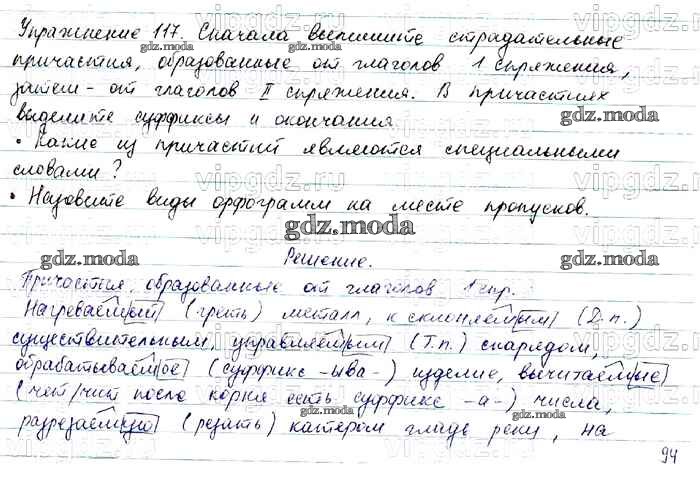 Упражнение 117. Сначала выпишите страдательные
причастия, образованные от глаголов 1 спряжения,
затем - от глаголов II спряжения. В причастиях
выделите суффиксы и окончания
• Какие из причастий являются специальными
словами?
• Назовите виды орфограмм на месте пропусков.
gdz.moda
Решение.
Причастия, образованные от глаголов 1 спр.
Нагреваемый (греть) металл, к склоняемым (Д.п.)
существительным, управляемым (Т.п.) снарядом,
обрабатываемое (суффикс -ыва-) изделие, вычитаемые
(чет/чит после корня есть суффикс -а-) числа,
разрезаемую (резать) катером гладь реки, на
94